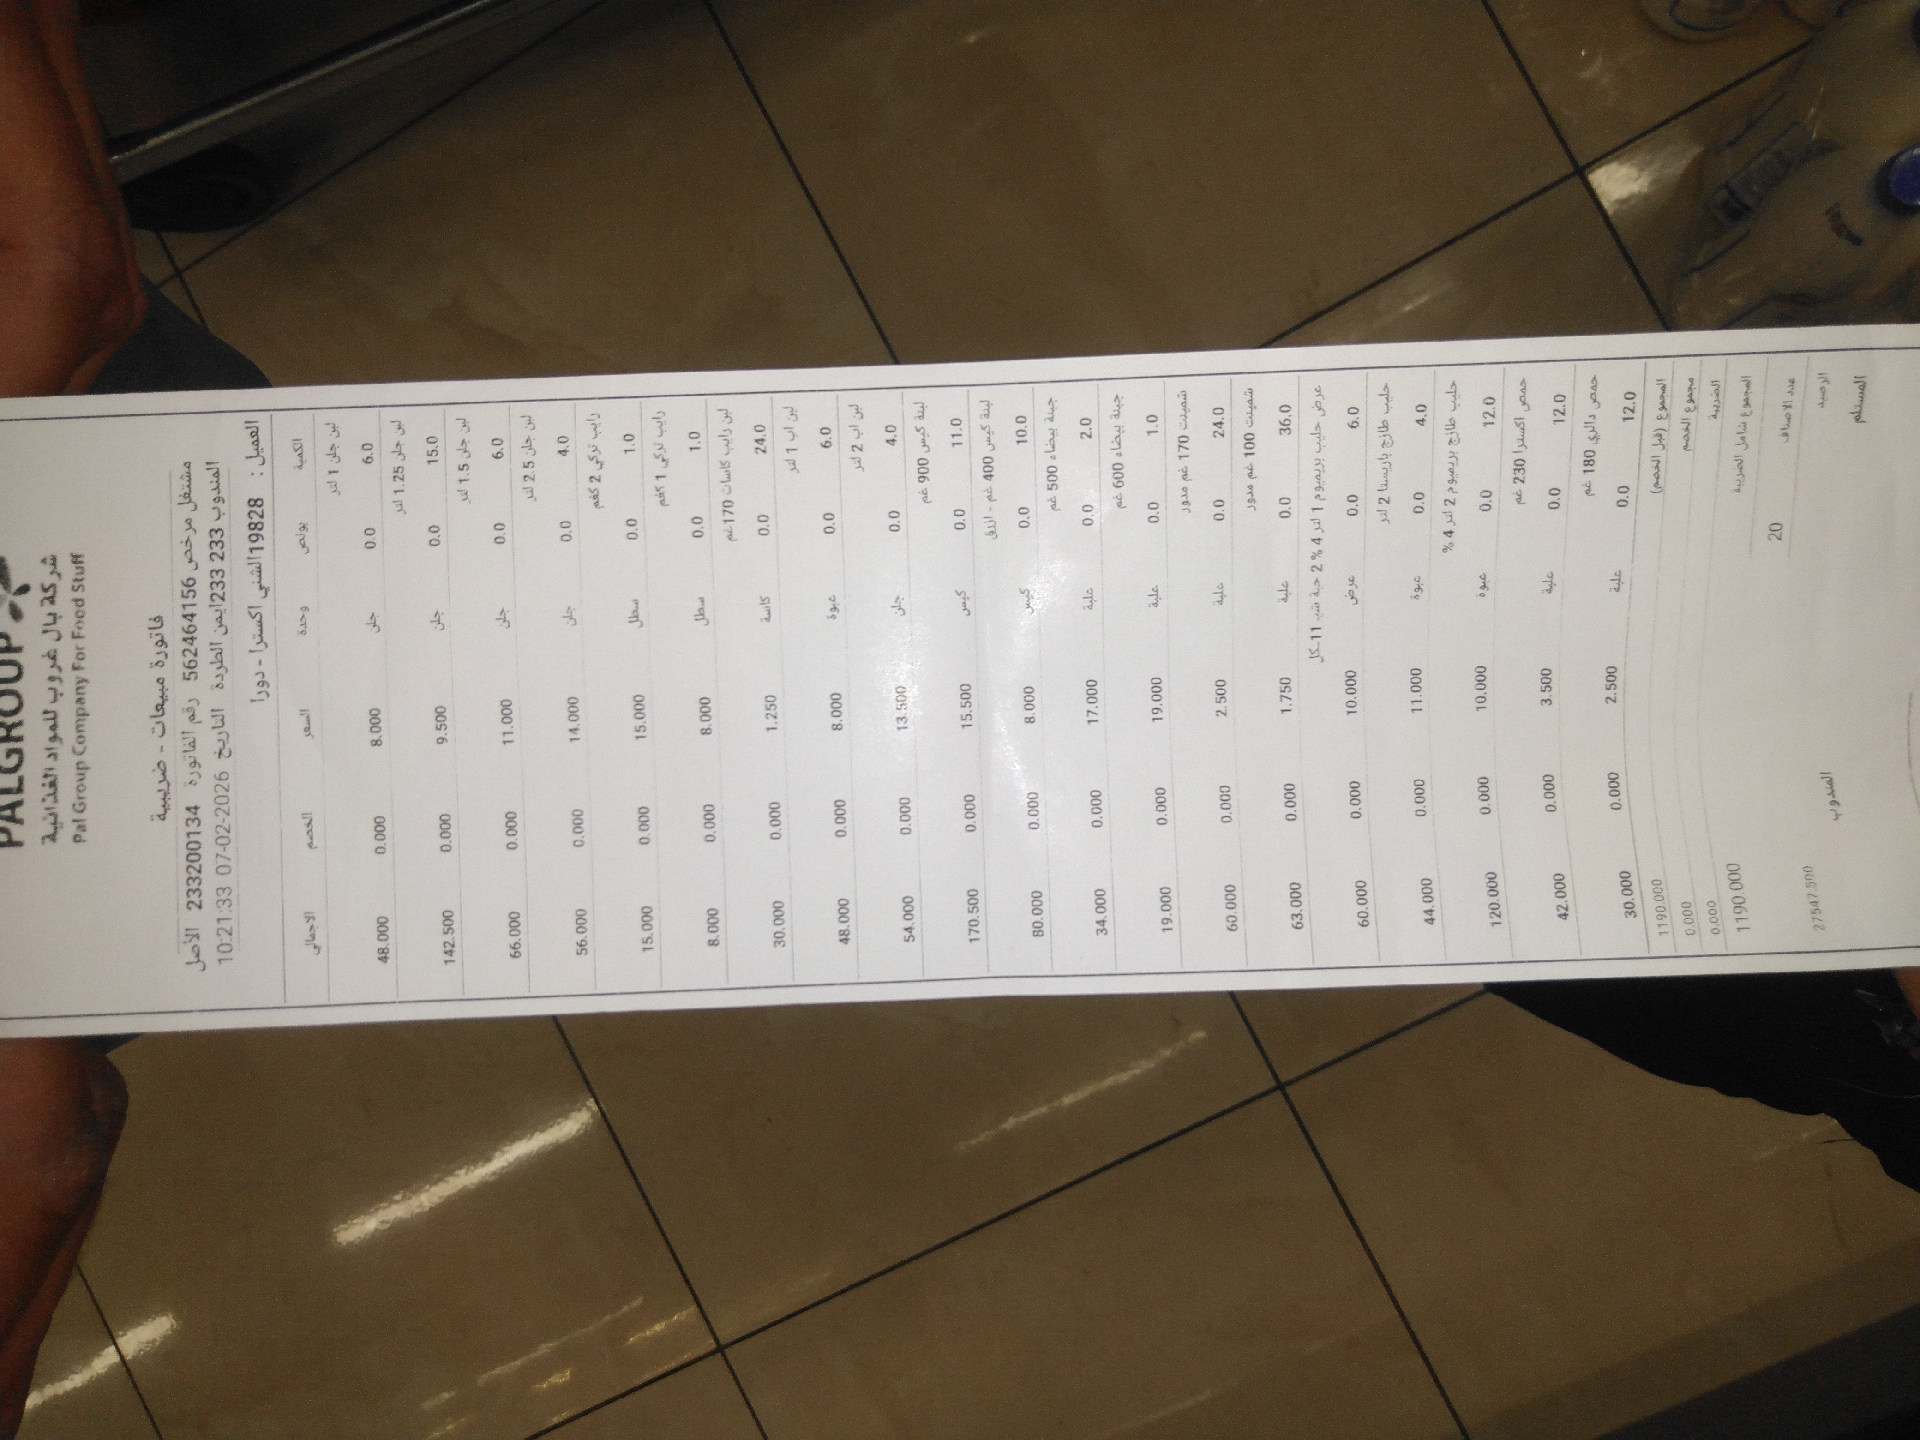 PALGROUP
شركة بال غروب للمواد الغذائية
Pal Group Company For Food Stuff
فاتورة مبيعات - ضريبية
مشتغل مرخص 562464156 رقم الفاتورة 233200134 الأصل
المندوب 233 233ايمن الطردة التاريخ 2026-02-07 10:21:33
العميل : 19828الشني اكسترا - دورا
الكمية بونص وحدة السعر الخصم الاجمالي
لبن جلن 1 لتر
6.0 0.0 جلن 8.000 0.000 48.000
لبن جلن 1.25 لتر
15.0 0.0 جلن 9.500 0.000 142.500
لبن جلن 1.5 لتر
6.0 0.0 جلن 11.000 0.000 66.000
لبن جلن 2.5 لتر
4.0 0.0 جلن 14.000 0.000 56.000
رايب تركي 2 كغم
1.0 0.0 سطل 15.000 0.000 15.000
رايب تركي 1 كغم
1.0 0.0 سطل 8.000 0.000 8.000
لبن رايب كاسات 170غم
24.0 0.0 كاسة 1.250 0.000 30.000
لبن اب 1 لتر
6.0 0.0 عبوة 8.000 0.000 48.000
لبن اب 2 لتر
4.0 0.0 جلن 13.500 0.000 54.000
لبنة كيس 900 غم
11.0 0.0 كيس 15.500 0.000 170.500
لبنة كيس 400 غم - ازرق
10.0 0.0 كيس 8.000 0.000 80.000
جبنة بيضاء 500 غم
2.0 0.0 علبة 17.000 0.000 34.000
جبنة بيضاء 600 غم
1.0 0.0 علبة 19.000 0.000 19.000
شمينت 170 غم مدور
24.0 0.0 علبة 2.500 0.000 60.000
شمينت 100 غم مدور
36.0 0.0 علبة 1.750 0.000 63.000
عرض حليب بريميوم 1 لتر 4 % 2 حبة شب 11-كل
6.0 0.0 عرض 10.000 0.000 60.000
حليب طازج باريستا 2 لتر
4.0 0.0 عبوة 11.000 0.000 44.000
حليب طازج بريميوم 2 لتر 4 %
12.0 0.0 عبوة 10.000 0.000 120.000
حمص اكسترا 230 غم
12.0 0.0 علبة 3.500 0.000 42.000
حمص دالري 180 غم
12.0 0.0 علبة 2.500 0.000 30.000
المجموع (قبل الخصم) 1190.000
مجموع الخصم 0.000
الضريبة 0.000
المجموع شامل الضريبة 1190.000
عدد الاصناف 20
الرصيد 27547.500
المستلم المندوب